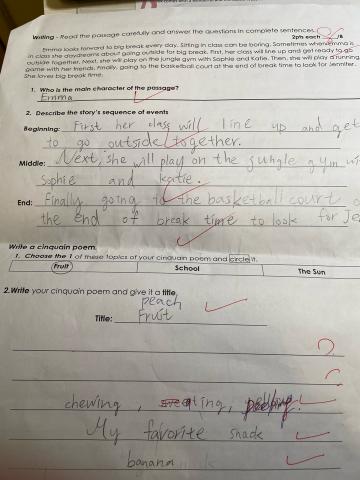 Writing - Read the passage carefully and answer the questions in complete sentences.
2pts each /8
Emma looks forward to big break every day. Sitting in class can be boring. Sometimes when Emma is
in class she daydreams about going outside for big break. First, her class will line up and get ready to go
outside together. Next, she will play on the jungle gym with Sophie and Katie. Then, she will play a running
game with her friends. Finally, going to the basketball court at the end of break time to look for Jennifer.
She loves big break time.
1. Who is the main character of the passage?
Emma
2. Describe the story's sequence of events
Beginning: First her class will line up and get
to go outside together.
Middle: Next, she will play on the junghe gym
Sophie and Katie.
End: Finally going to the basketball court
the end of break time to look for
Write a cinquain poem.
1. Choose the 1 of these topics of your cinquain poem and circle it.
Fruit School The Sun
2. Write your cinquain poem and give it a title.
peach
Title: Fruit
chewing, eating,
My favorite snack
banana